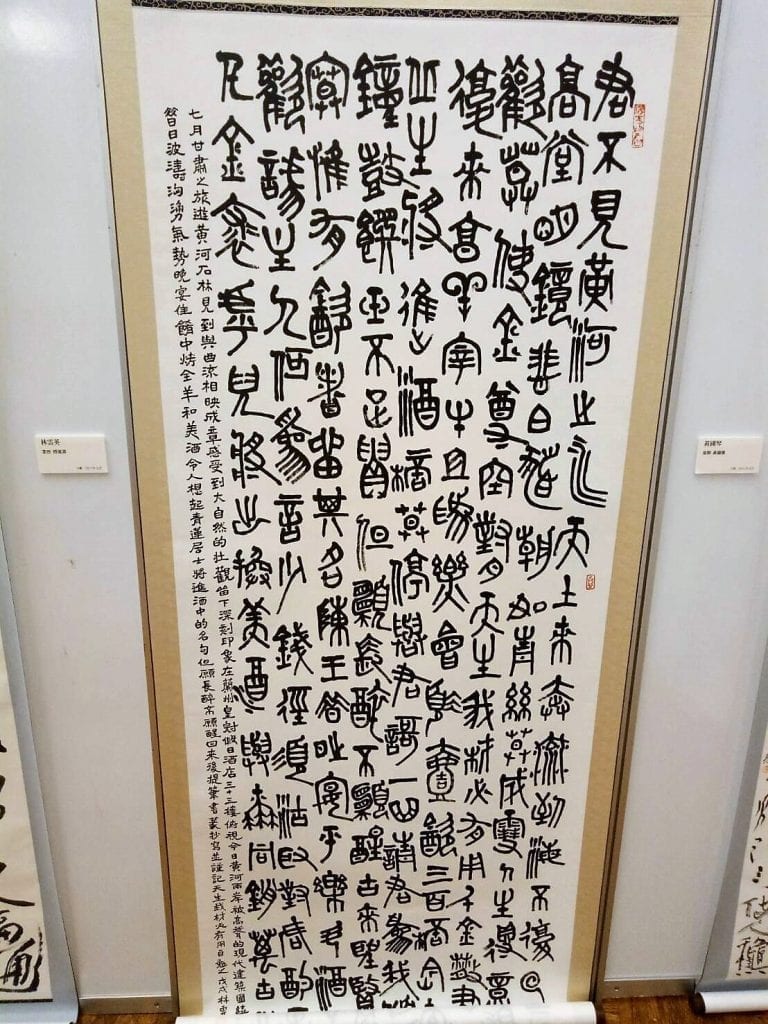 君不見黃河之水天上來奔流到海不復回
高堂明鏡悲白髮朝如青絲暮成雪人生得意
歡莫使金尊空對月天生我材必有用千金散盡
還來高羊宰牛且為樂會須壹飲三百桮
丘生將進酒桮莫停與君謌一曲請君為我
鐘鼓饌玉不足貴但願長醉不願醒古來聖賢
寞惟有飲者留其名陳王昔時宴平樂斗酒
歡謔主人何為言少錢徑須沽取對君酌
千金裘呼兒將出換美酒與爾同銷萬古
七月甘肅之旅遊黃河石林見到與曲流相映成章感受到大自然的壯觀留下深刻印象在蘭州皇冠假日酒店三十三樓俯視今日黃河兩岸被高聳的現代建築圍繞
昔日波濤洶湧氣勢晚宴佳餚中烤全羊和美酒令人想起青蓮居士將進酒中的名句但願長醉不願醒回來後提筆書篆抄寫並謹記天生我材必有用自勉之戊戌林雲
林雲英
黃國琴